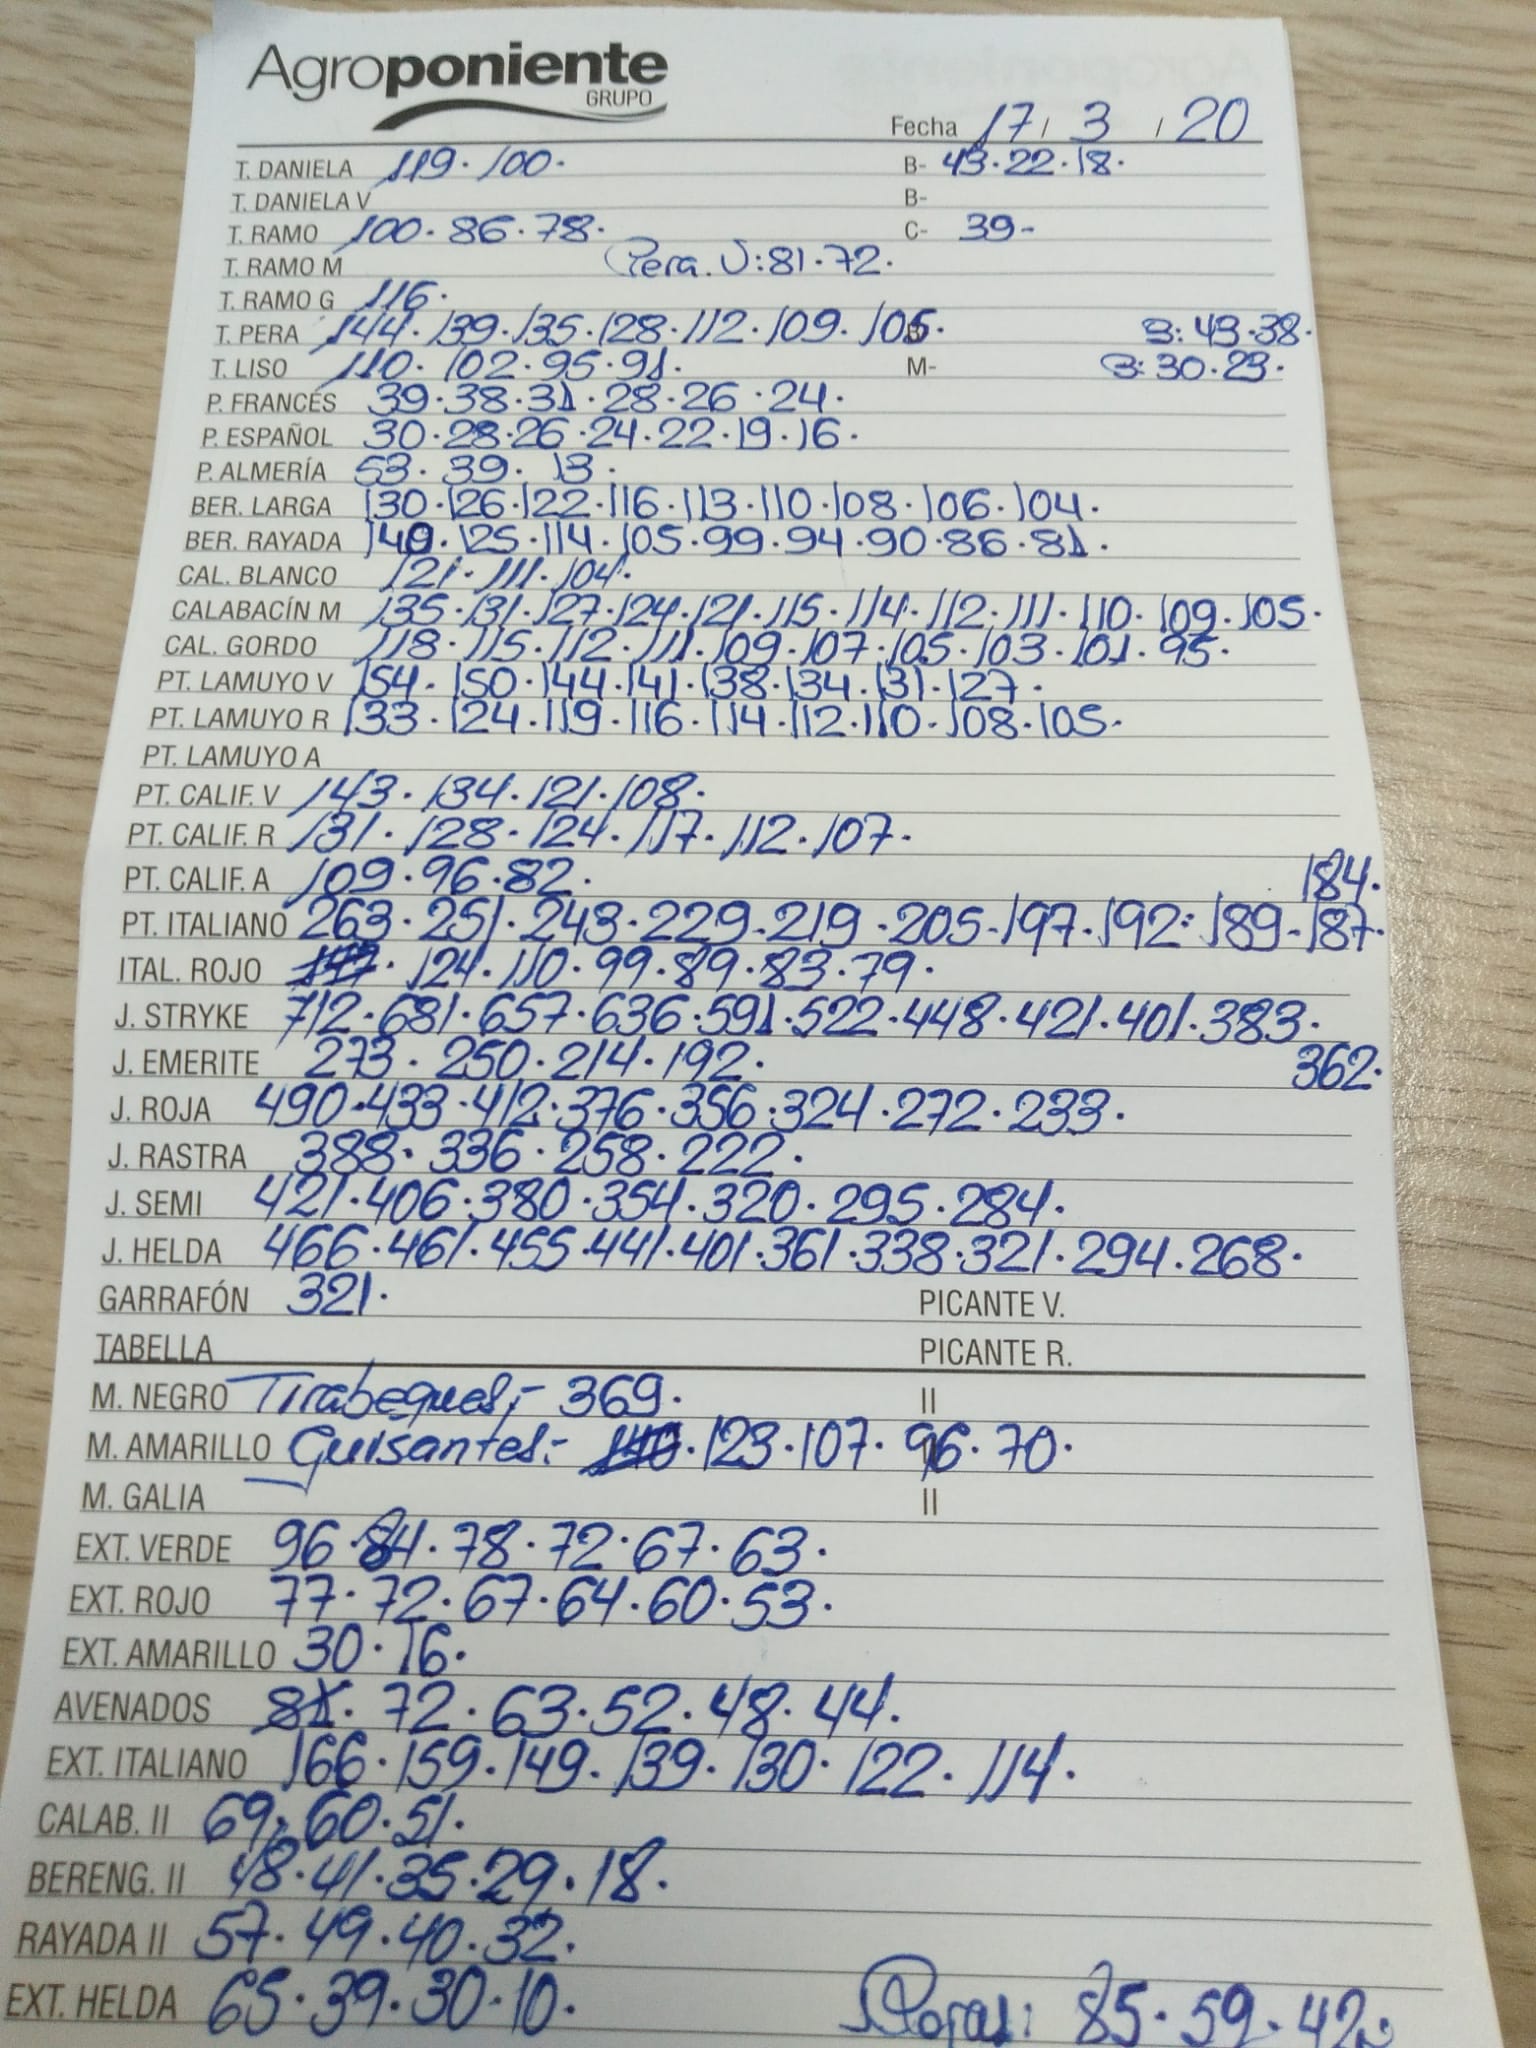 Agroponiente
GRUPO
Fecha 17 / 3 / 20
T. DANIELA 119. 100. B- 43.22.18.
T. DANIELA V B-
T. RAMO 100. 86. 78. C- 39-
T. RAMO M Pera. V: 81.72.
T. RAMO G 116.
T. PERA 144. 139. 135. 128. 112. 109. 105. B: 43.38.
T. LISO 110. 102. 95. 91. M- B: 30.23.
P. FRANCÉS 39. 38. 31. 28. 26. 24.
P. ESPAÑOL 30. 28. 26. 24. 22. 19. 16.
P. ALMERÍA 53. 39. 13.
BER. LARGA 130. 126. 122. 116. 113. 110. 108. 106. 104.
BER. RAYADA 140. 125. 114. 105. 99. 94. 90. 86. 81.
CAL. BLANCO 121. 111. 104.
CALABACÍN M 135. 131. 127. 124. 121. 115. 114. 112. 111. 110. 109. 105.
CAL. GORDO 118. 115. 112. 111. 109. 107. 105. 103. 101. 95.
PT. LAMUYO V 154. 150. 144. 141. 138. 134. 131. 127.
PT. LAMUYO R 133. 124. 119. 116. 114. 112. 110. 108. 105.
PT. LAMUYO A
PT. CALIF. V 143. 134. 121. 108.
PT. CALIF. R 131. 128. 124. 117. 112. 107.
PT. CALIF. A 109. 96. 82. 184.
PT. ITALIANO 263. 251. 243. 229. 219. 205. 197. 192. 189. 187.
ITAL. ROJO 124. 110. 99. 89. 83. 79.
J. STRYKE 712. 681. 657. 636. 591. 522. 448. 421. 401. 383.
J. EMERITE 273. 250. 214. 192. 362.
J. ROJA 490. 433. 412. 376. 356. 324. 272. 233.
J. RASTRA 388. 336. 258. 222.
J. SEMI 421. 406. 380. 354. 320. 295. 284.
J. HELDA 466. 461. 455. 441. 401. 361. 338. 321. 294. 268.
GARRAFÓN 321. PICANTE V.
TABELLA PICANTE R.
M. NEGRO Tirabeques;- 369. II
M. AMARILLO Guisantes:- 123. 107. 96. 70.
M. GALIA II
EXT. VERDE 96. 84. 78. 72. 67. 63.
EXT. ROJO 77. 72. 67. 64. 60. 53.
EXT. AMARILLO 30. 16.
AVENADOS 81. 72. 63. 52. 48. 44.
EXT. ITALIANO 166. 159. 149. 139. 130. 122. 114.
CALAB. II 69. 60. 51.
BERENG. II 48. 41. 35. 29. 18.
RAYADA II 57. 49. 40. 32.
EXT. HELDA 65. 39. 30. 10. Rojas: 85. 59. 42.